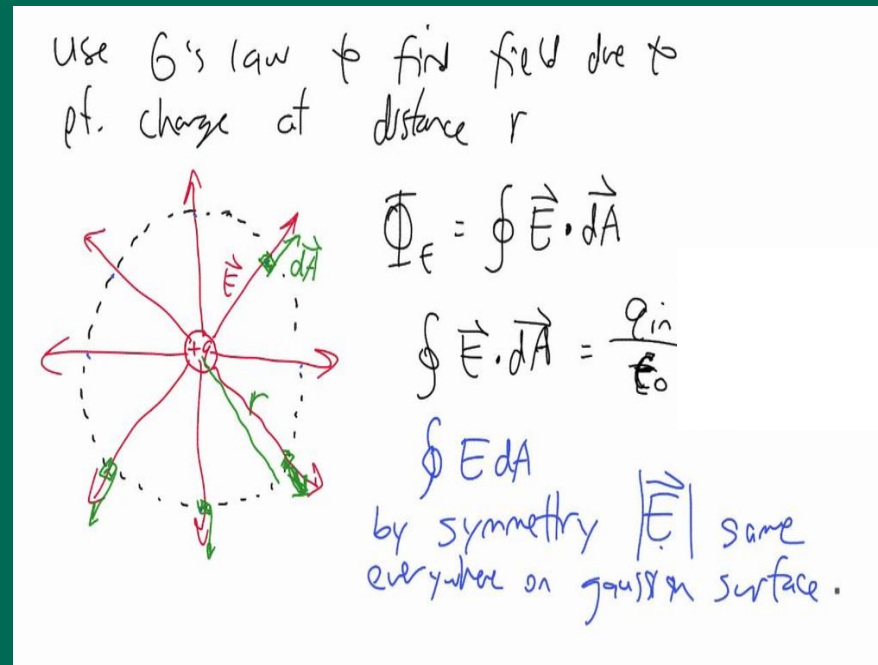 Use G's law to find field due to
pt. charge at distance r
Φ_E = ∮ E⃗ · dA⃗
E⃗
dA⃗
∮ E⃗ · dA⃗ = q_in / ε_0
+q
r
∮ E dA
by symmetry |E⃗| same
everywhere on gaussian surface.